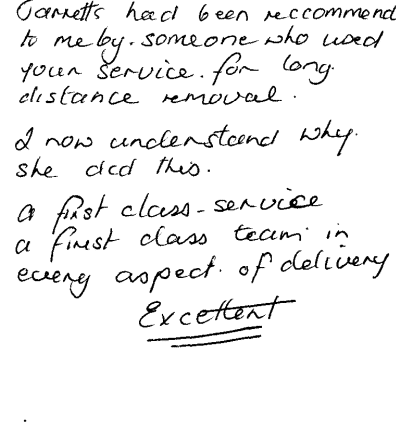 Garretts had been reccommend
to me by. someone who used
your service. for long.
distance removal.
I now understand why.
she did this.
a first class - service
a finest class team in
every aspect. of delivery
Excellent